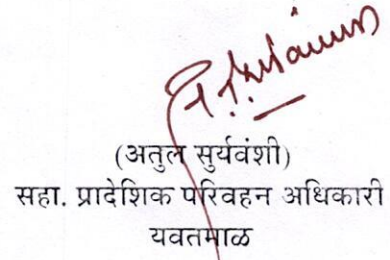 (अतुल सुर्यवंशी)
सहा. प्रादेशिक परिवहन अधिकारी
यवतमाळ